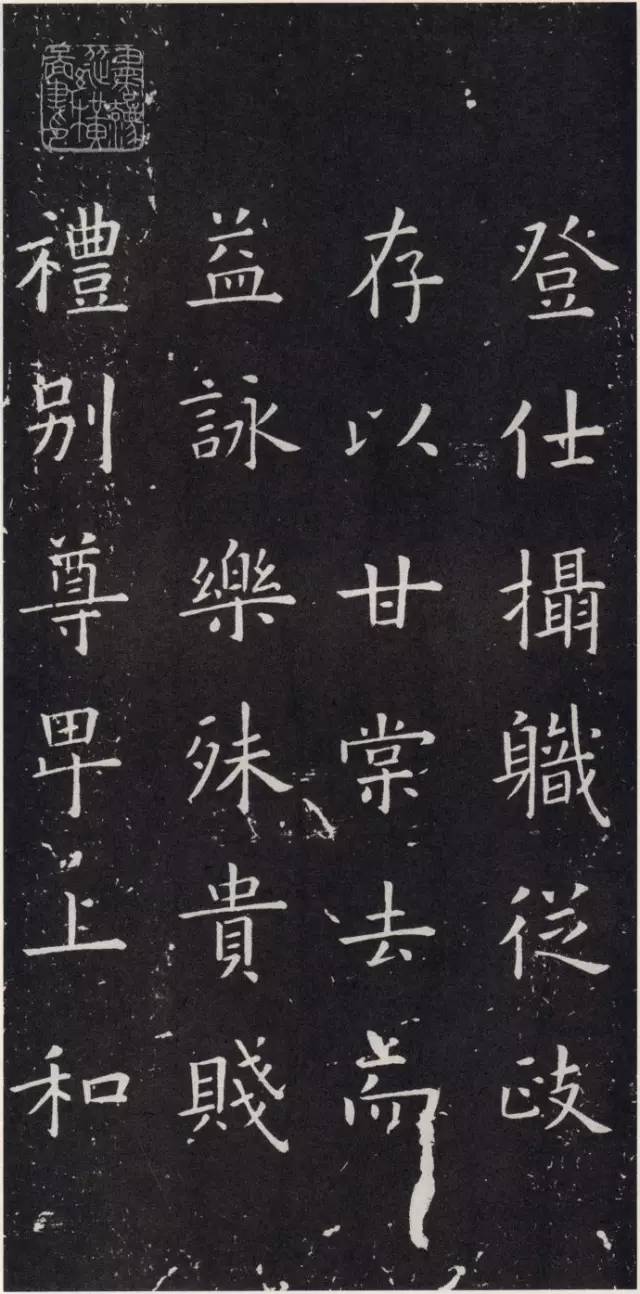 登仕攝職從政
存以甘棠去而
益詠樂殊貴賤
禮别尊卑上和